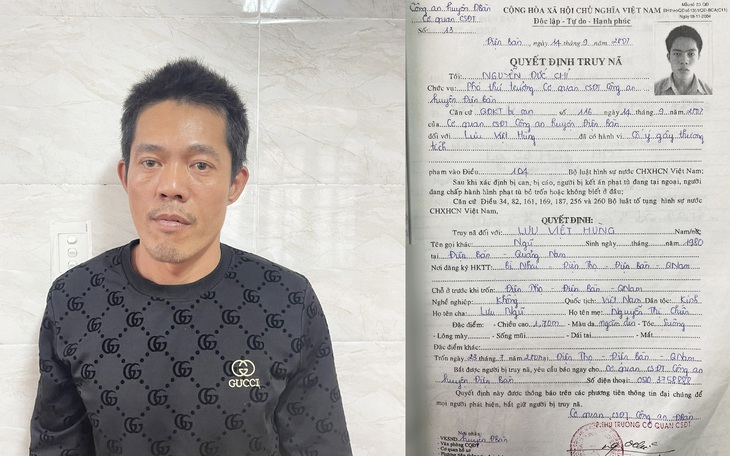 GUCCI
Công an huyện ĐBàn
Cơ quan CSĐT
Số 13
CỘNG HÒA XÃ HỘI CHỦ NGHĨA VIỆT NAM
Độc lập - Tự do - Hạnh phúc
Điện Bàn, ngày 14 tháng 9 năm 2007
QUYẾT ĐỊNH TRUY NÃ
Tôi: NGUYỄN ĐỨC CHỈ
Chức vụ: Phó thủ trưởng Cơ quan CSĐT Công an
huyện Điện Bàn
Căn cứ QĐKT bị can số 116 ngày 14 tháng 9 năm
của Cơ quan CSĐT Công an huyện Điện Bàn
đối với Lưu Việt Hùng đã có hành vi Cố ý gây thương
tích
phạm vào Điều 104 Bộ luật hình sự nước CHXHCN Việt Nam;
Sau khi xác định bị can, bị cáo, người bị kết án phạt tù đang tại ngoại, người
đang chấp hành hình phạt tù bỏ trốn hoặc không biết ở đâu;
Căn cứ Điều 34, 82, 161, 169, 187, 256 và 260 Bộ luật tố tụng hình sự nước
CHXHCN Việt Nam,
QUYẾT ĐỊNH:
Truy nã đối với: LƯU VIỆT HÙNG Nam/nữ
Tên gọi khác: Ngữ Sinh ngày tháng năm 1980
tại Điện Bàn - Quảng Nam
Nơi đăng ký HKTT: Bì Nhai - Điện Thọ - Điện Bàn - QNam
Chỗ ở trước khi trốn: Điện Thọ - Điện Bàn - QNam
Nghề nghiệp: Không Quốc tịch: Việt Nam Dân tộc: Kinh
Họ tên cha: Lưu Ngữ Họ tên mẹ: Nguyễn Thị
Đặc điểm: - Chiều cao: 1,70m - Màu da: ngăm đen - Tóc: Suông
- Lông mày - Sống mũi - Dái tai - Mắt
Đặc điểm khác:
Trốn ngày 23 tháng 7 năm tại Điện Thọ - Điện Bàn - QNam
Bắt được người bị truy nã, yêu cầu báo ngay cho: Cơ quan CSĐT Công an
huyện Điện Bàn Số điện thoại:
Quyết định này được thông báo trên các phương tiện thông tin đại chúng để
mọi người phát hiện, bắt giữ người bị truy nã.
Cơ quan CSĐT Công an ĐBàn
P.THỦ TRƯỞNG CƠ QUAN CSĐT
Nơi nhận:
VKSND huyện ĐBàn